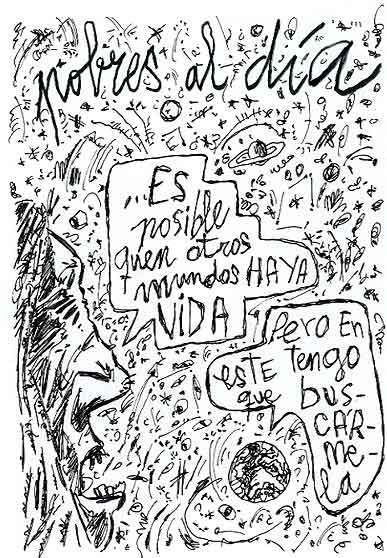 pobres al día
..Es
posible
quen otros
mundos HAYA
VIDA
Pero En
esTE TENGO
que bus-
CAR-
me-
la